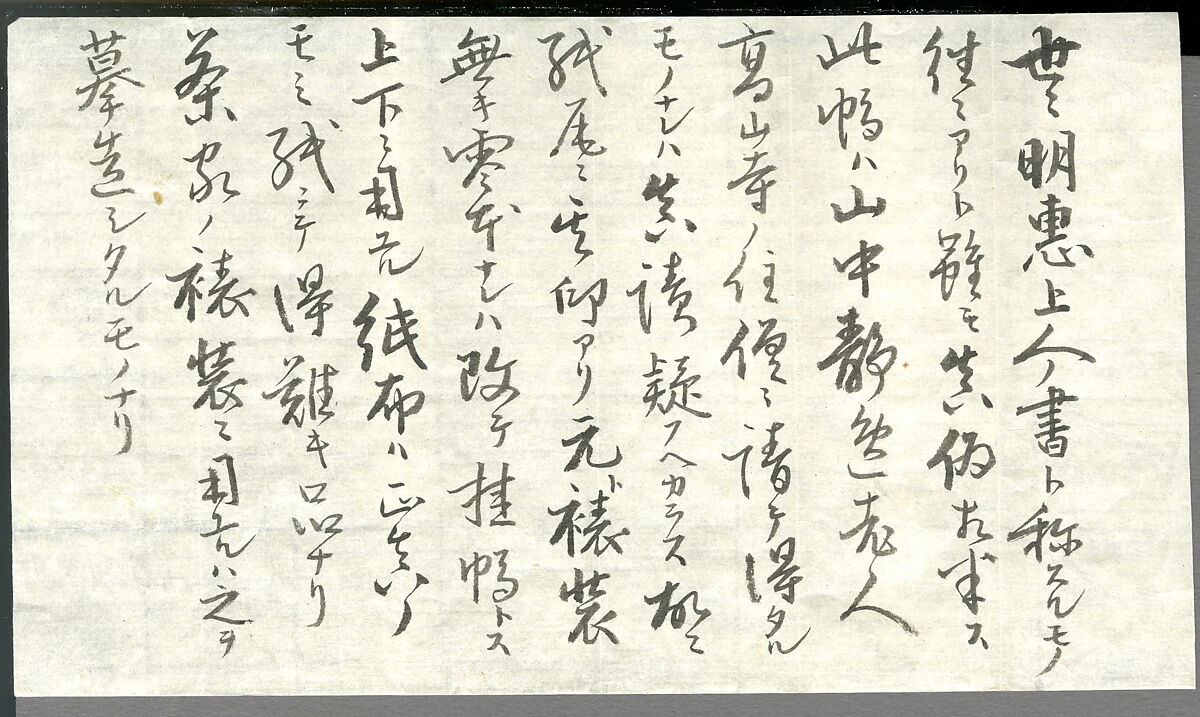 世ニ明恵上人ノ書ト称スルモノ
往々アリト雖モ真偽相半ス
此幅ハ山中静逸老人
高山寺ノ住僧ニ請テ得タル
モノナレハ真蹟疑フヘカラス故ニ
紙尾ニ其印アリ元ト裱装
無キ零本ナレハ改テ挂幅トス
上下ニ用フル紙布ハ正真ノ
モミ紙ニテ得難キ品ナリ
茶家ノ裱装ニ用フルハ之ヲ
摹造シタルモノナリ